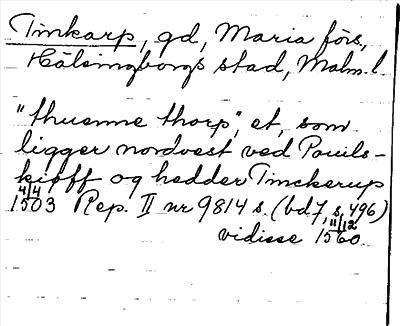 Tinkarp, gd, Maria förs,
Hälsingborgs stad, Malm. l.
"thuenne thorp", et, som
ligger nordvest ved Pouils-
kiøff og hedder Tinckerup
4/4 1503 Rep. II nr 9814 s. (bd 7, s, 496)
vidisse 11/12 1560.